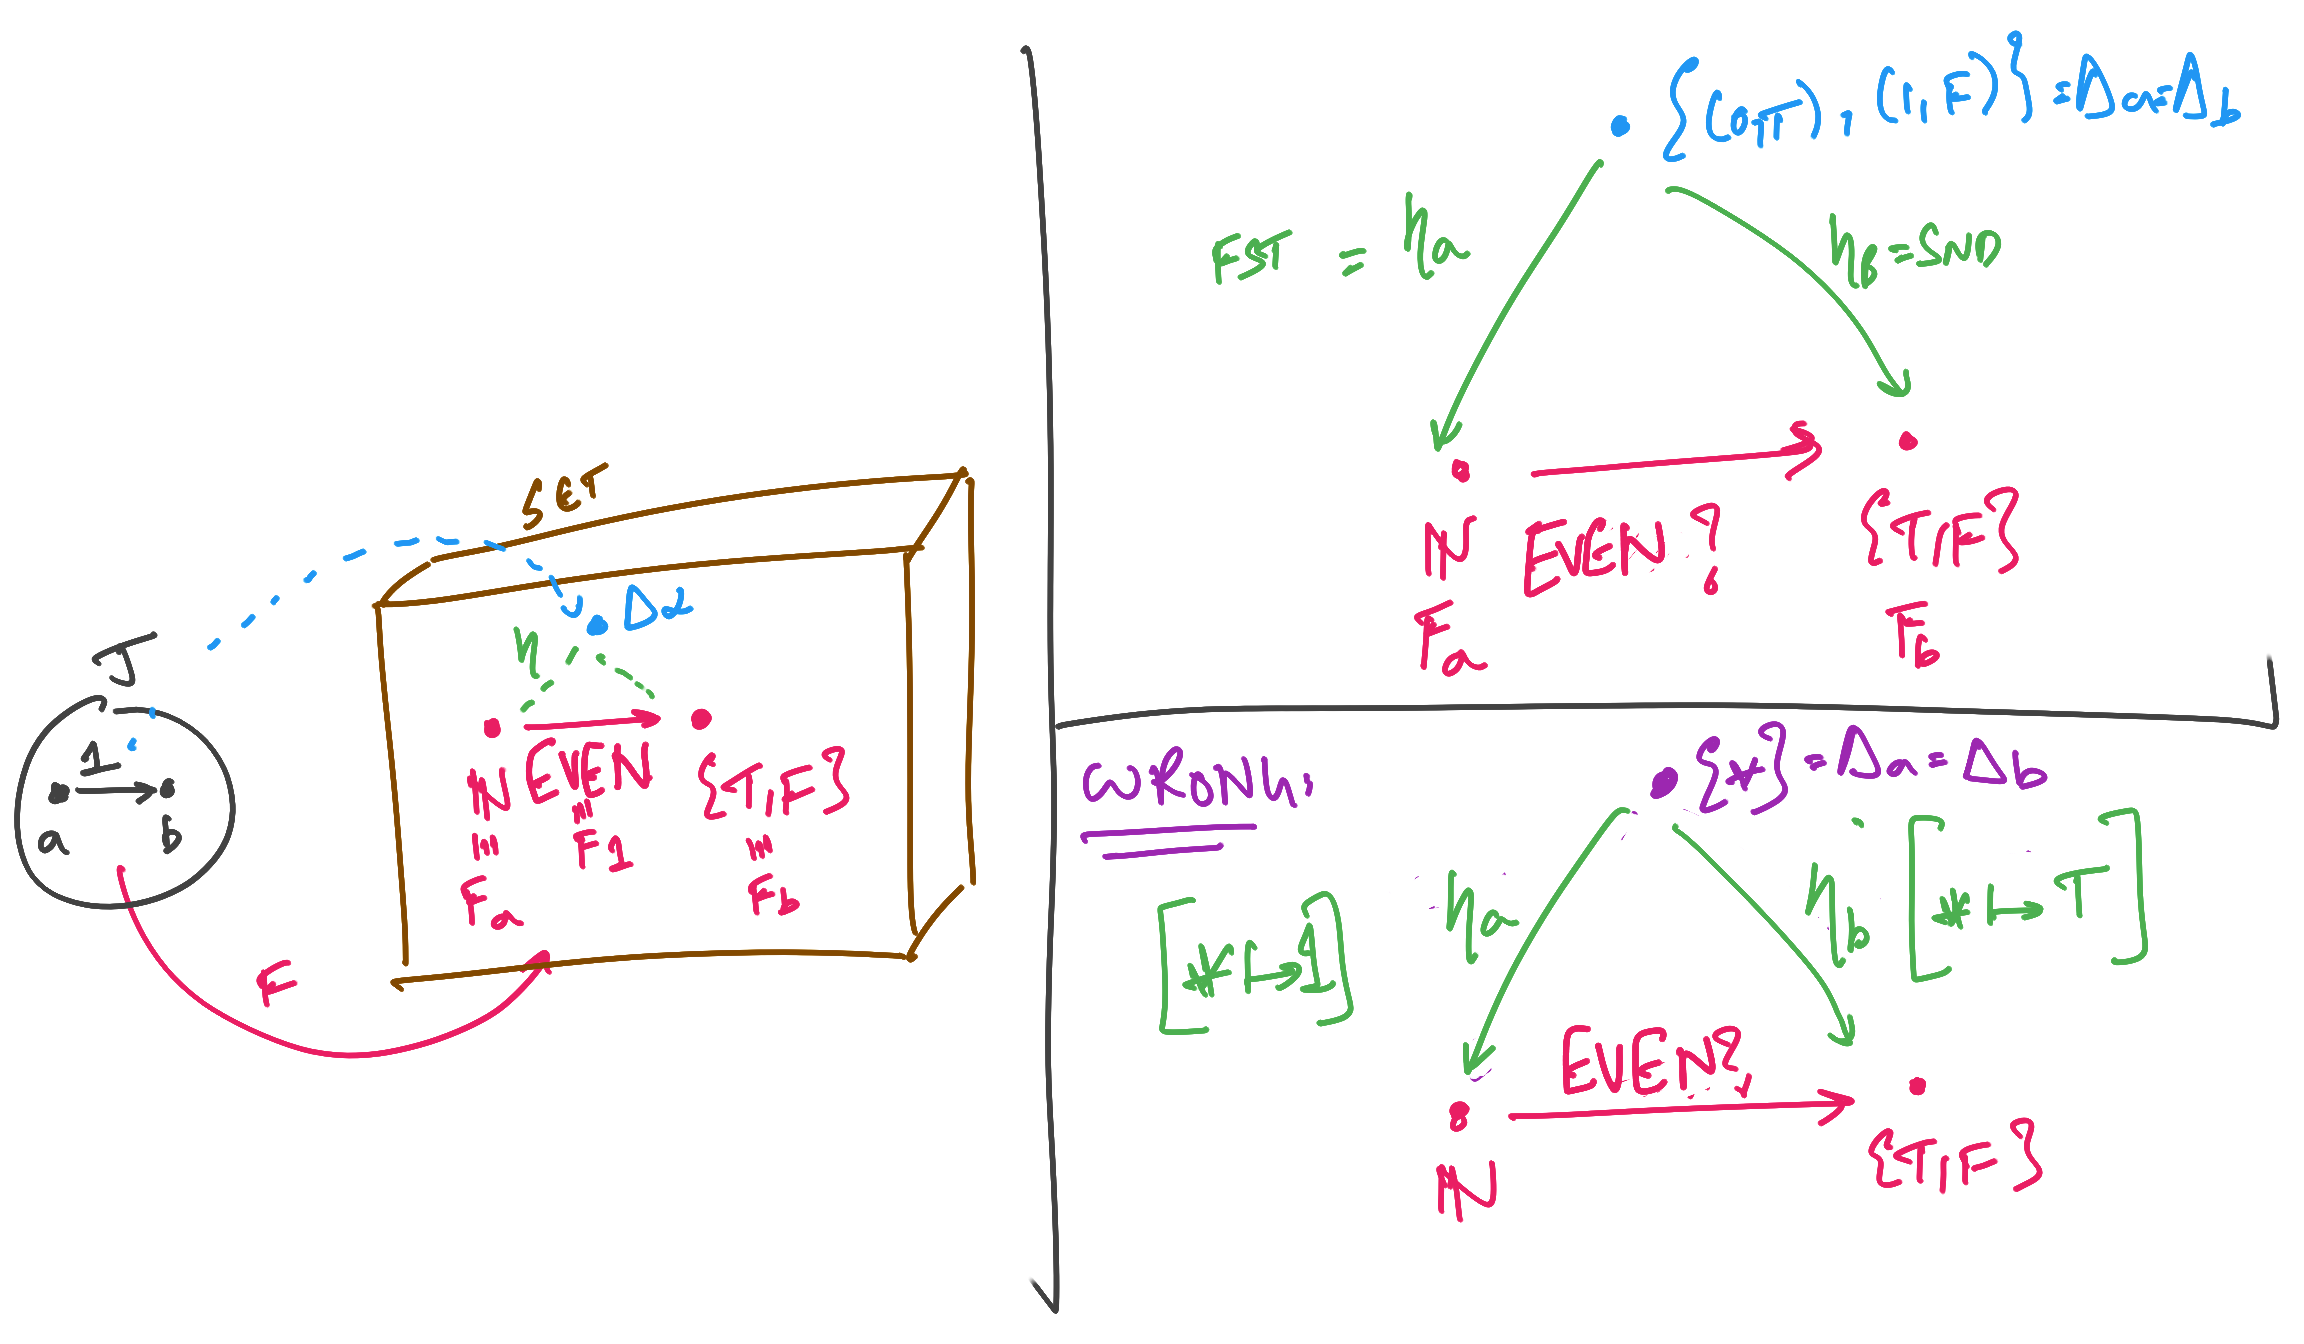 SET
Δα
η
J
1
a b
ℕ EVEN {T,F}
= = =
Fa F1 Fb
F
{(0,T), (1,F)} = Δa = Δb
FST = ηa
ηb = SND
ℕ EVEN? {T,F}
Fa Fb
WRONG:
{*} = Δa = Δb
ηa
[* ↦ 1]
ηb [* ↦ T]
EVEN?
ℕ {T,F}